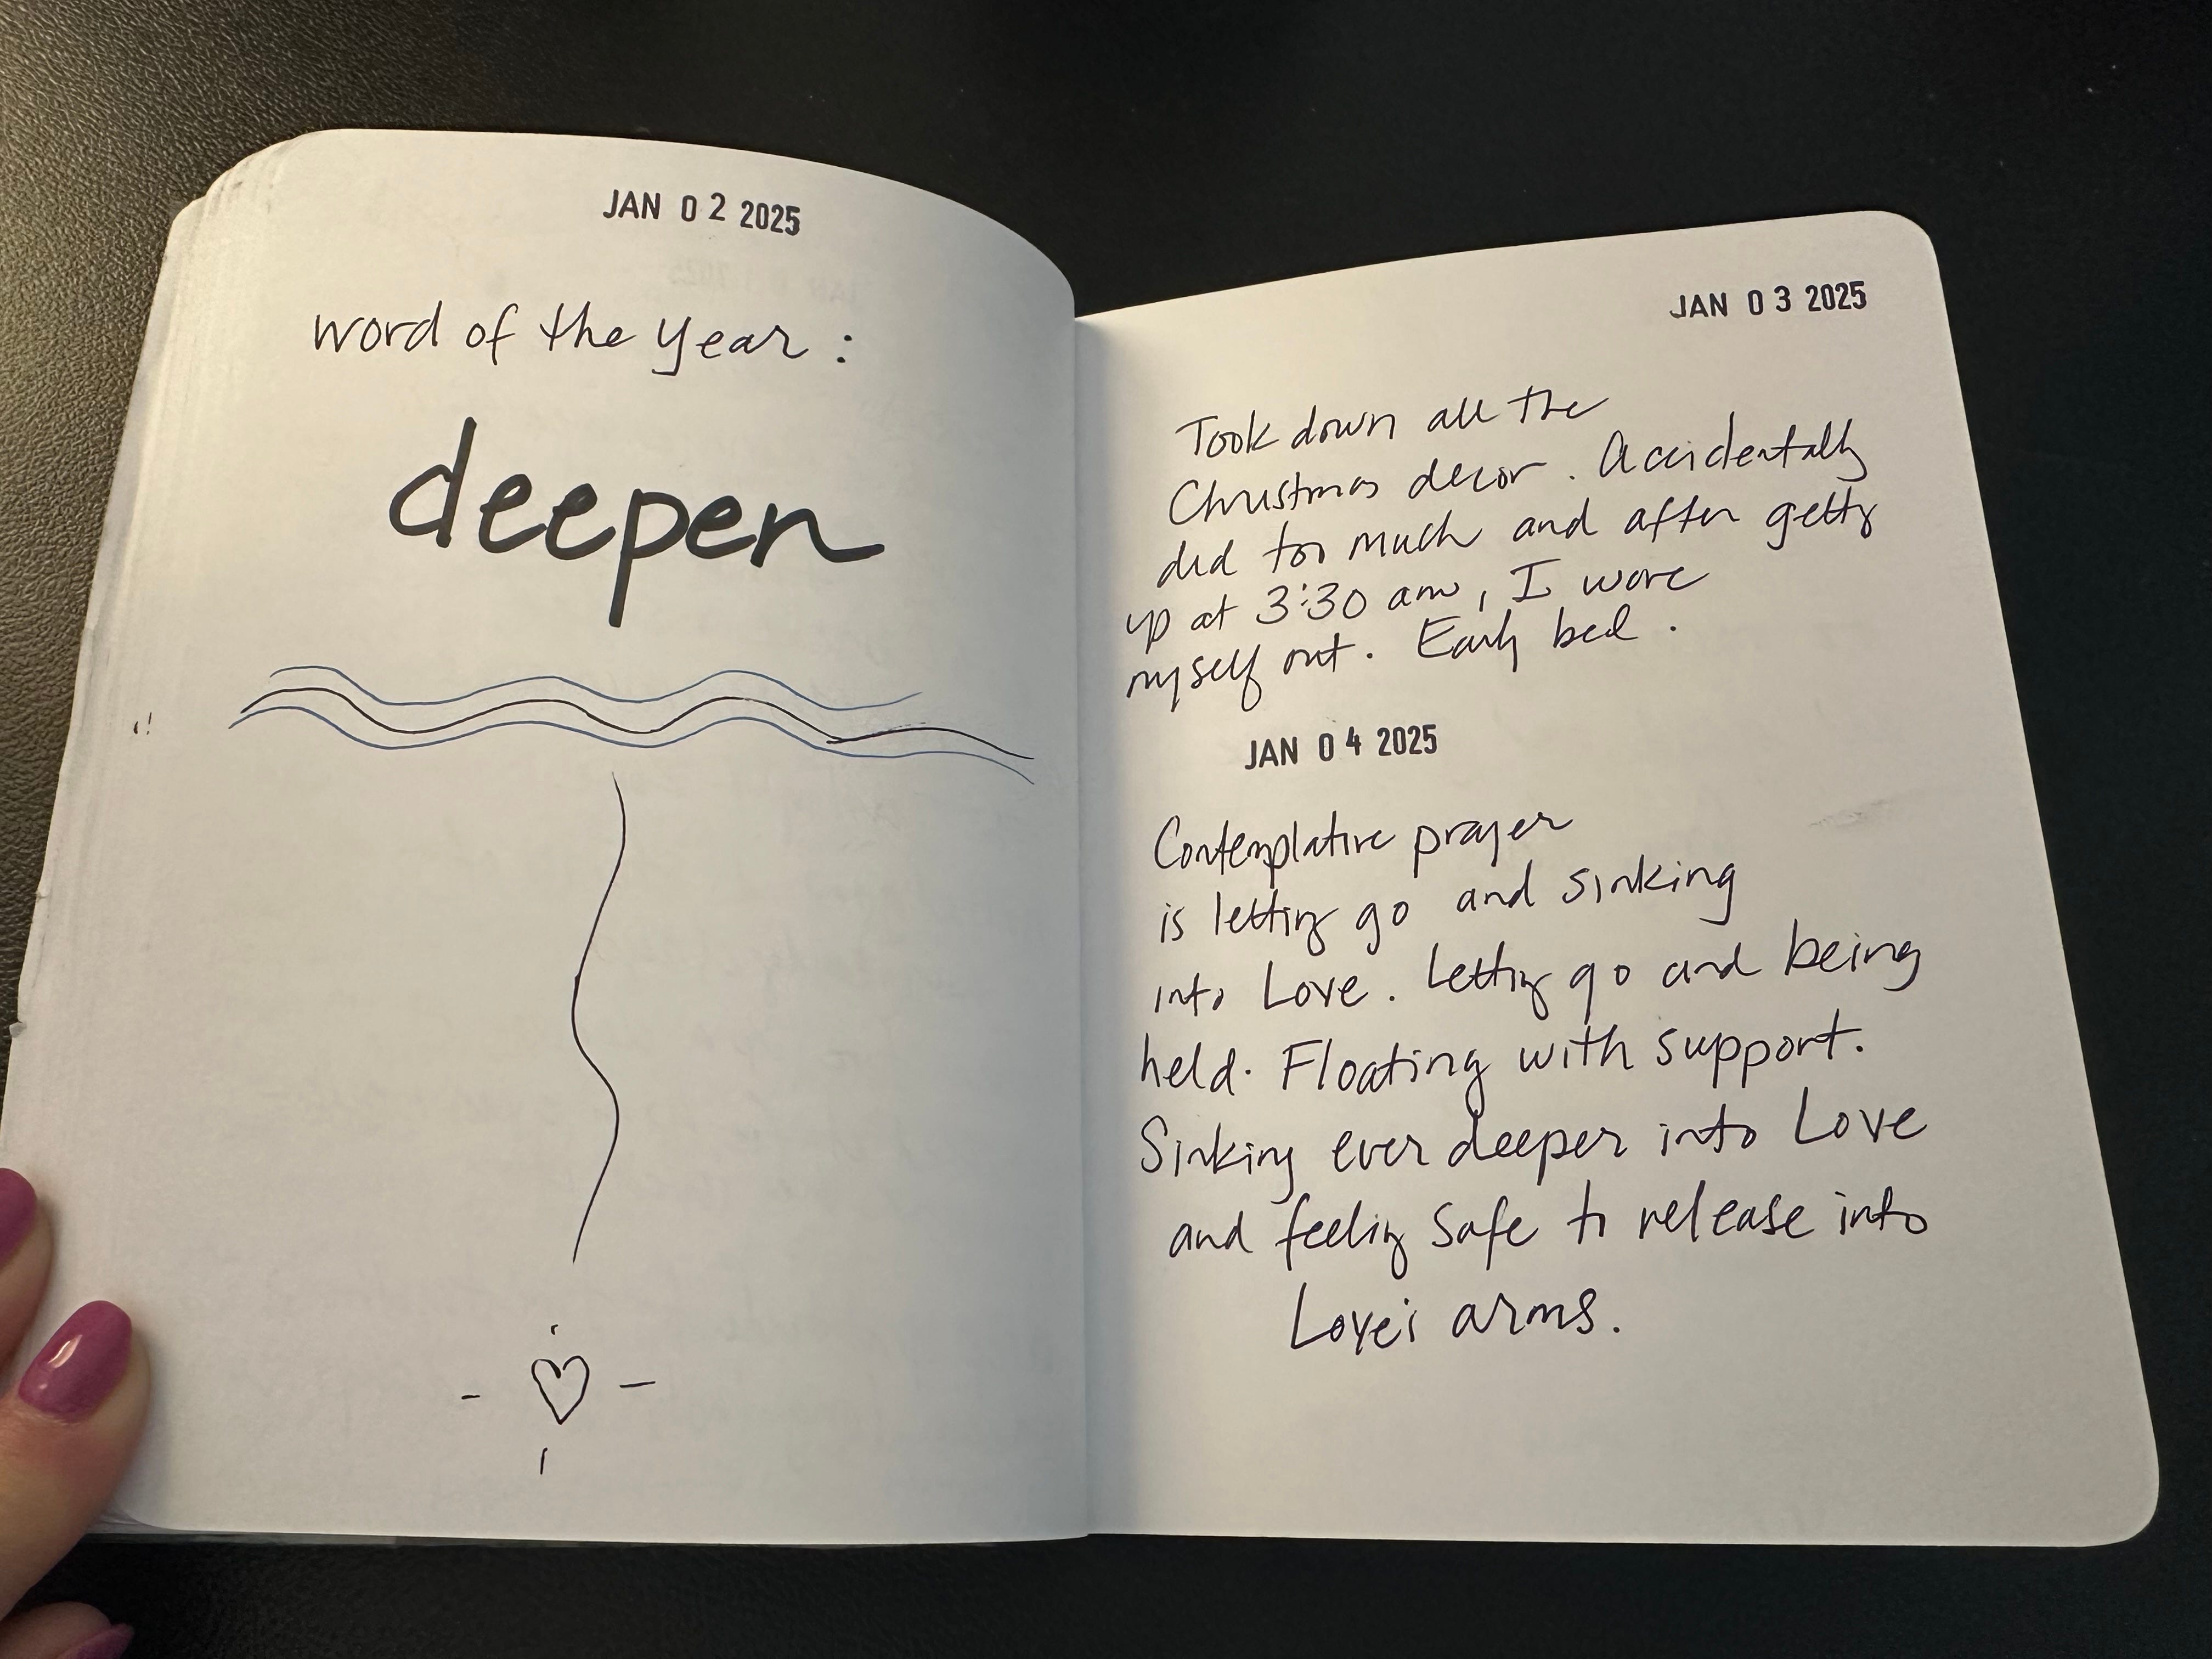 JAN 02 2025
word of the year :
deepen
JAN 03 2025
Took down all the
Christmas decor. Accidentally
did too much and after getting
up at 3:30 am, I wore
myself out. Early bed.
JAN 04 2025
Contemplative prayer
is letting go and sinking
into Love. Letting go and being
held. Floating with support.
Sinking ever deeper into Love
and feeling safe to release into
Love's arms.